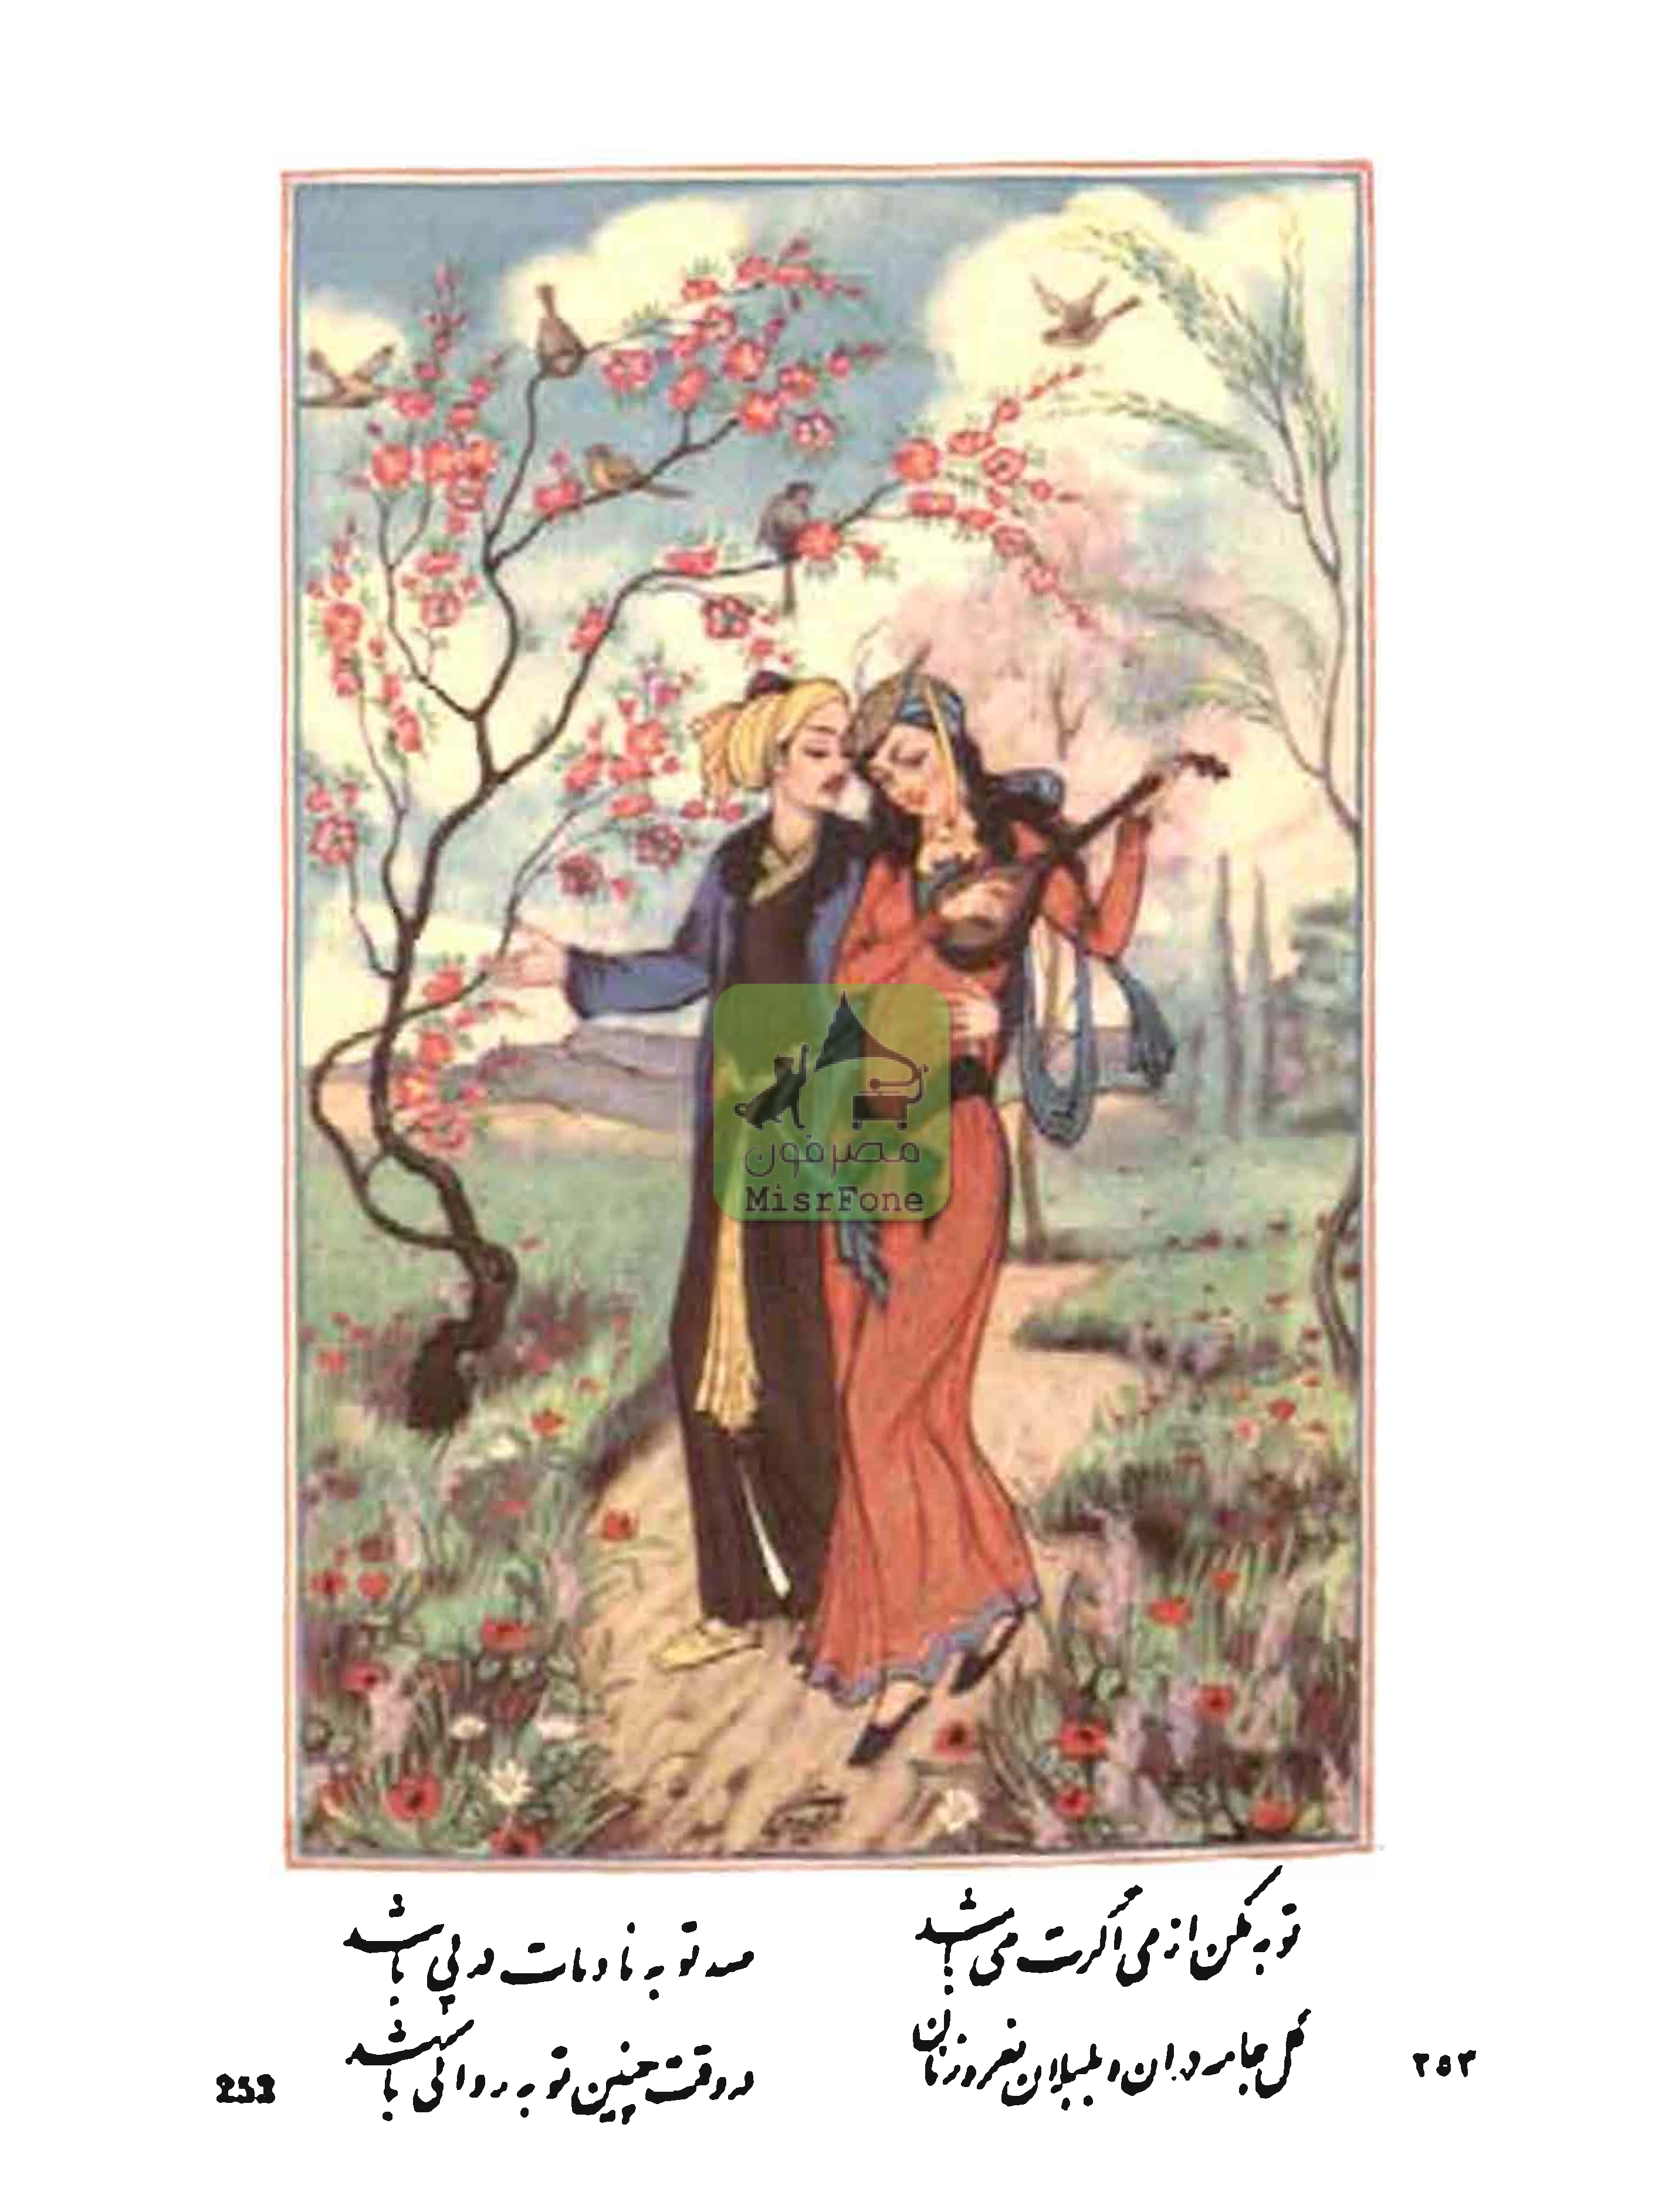 مصرفون
MisrFone
توبه مکن از می اگرت می باشد
صد توبه نادمات در پی باشد
گل جامه دران و بلبلان نعره زنان
در وقت چنین توبه روا کی باشد
۲۵۳
253